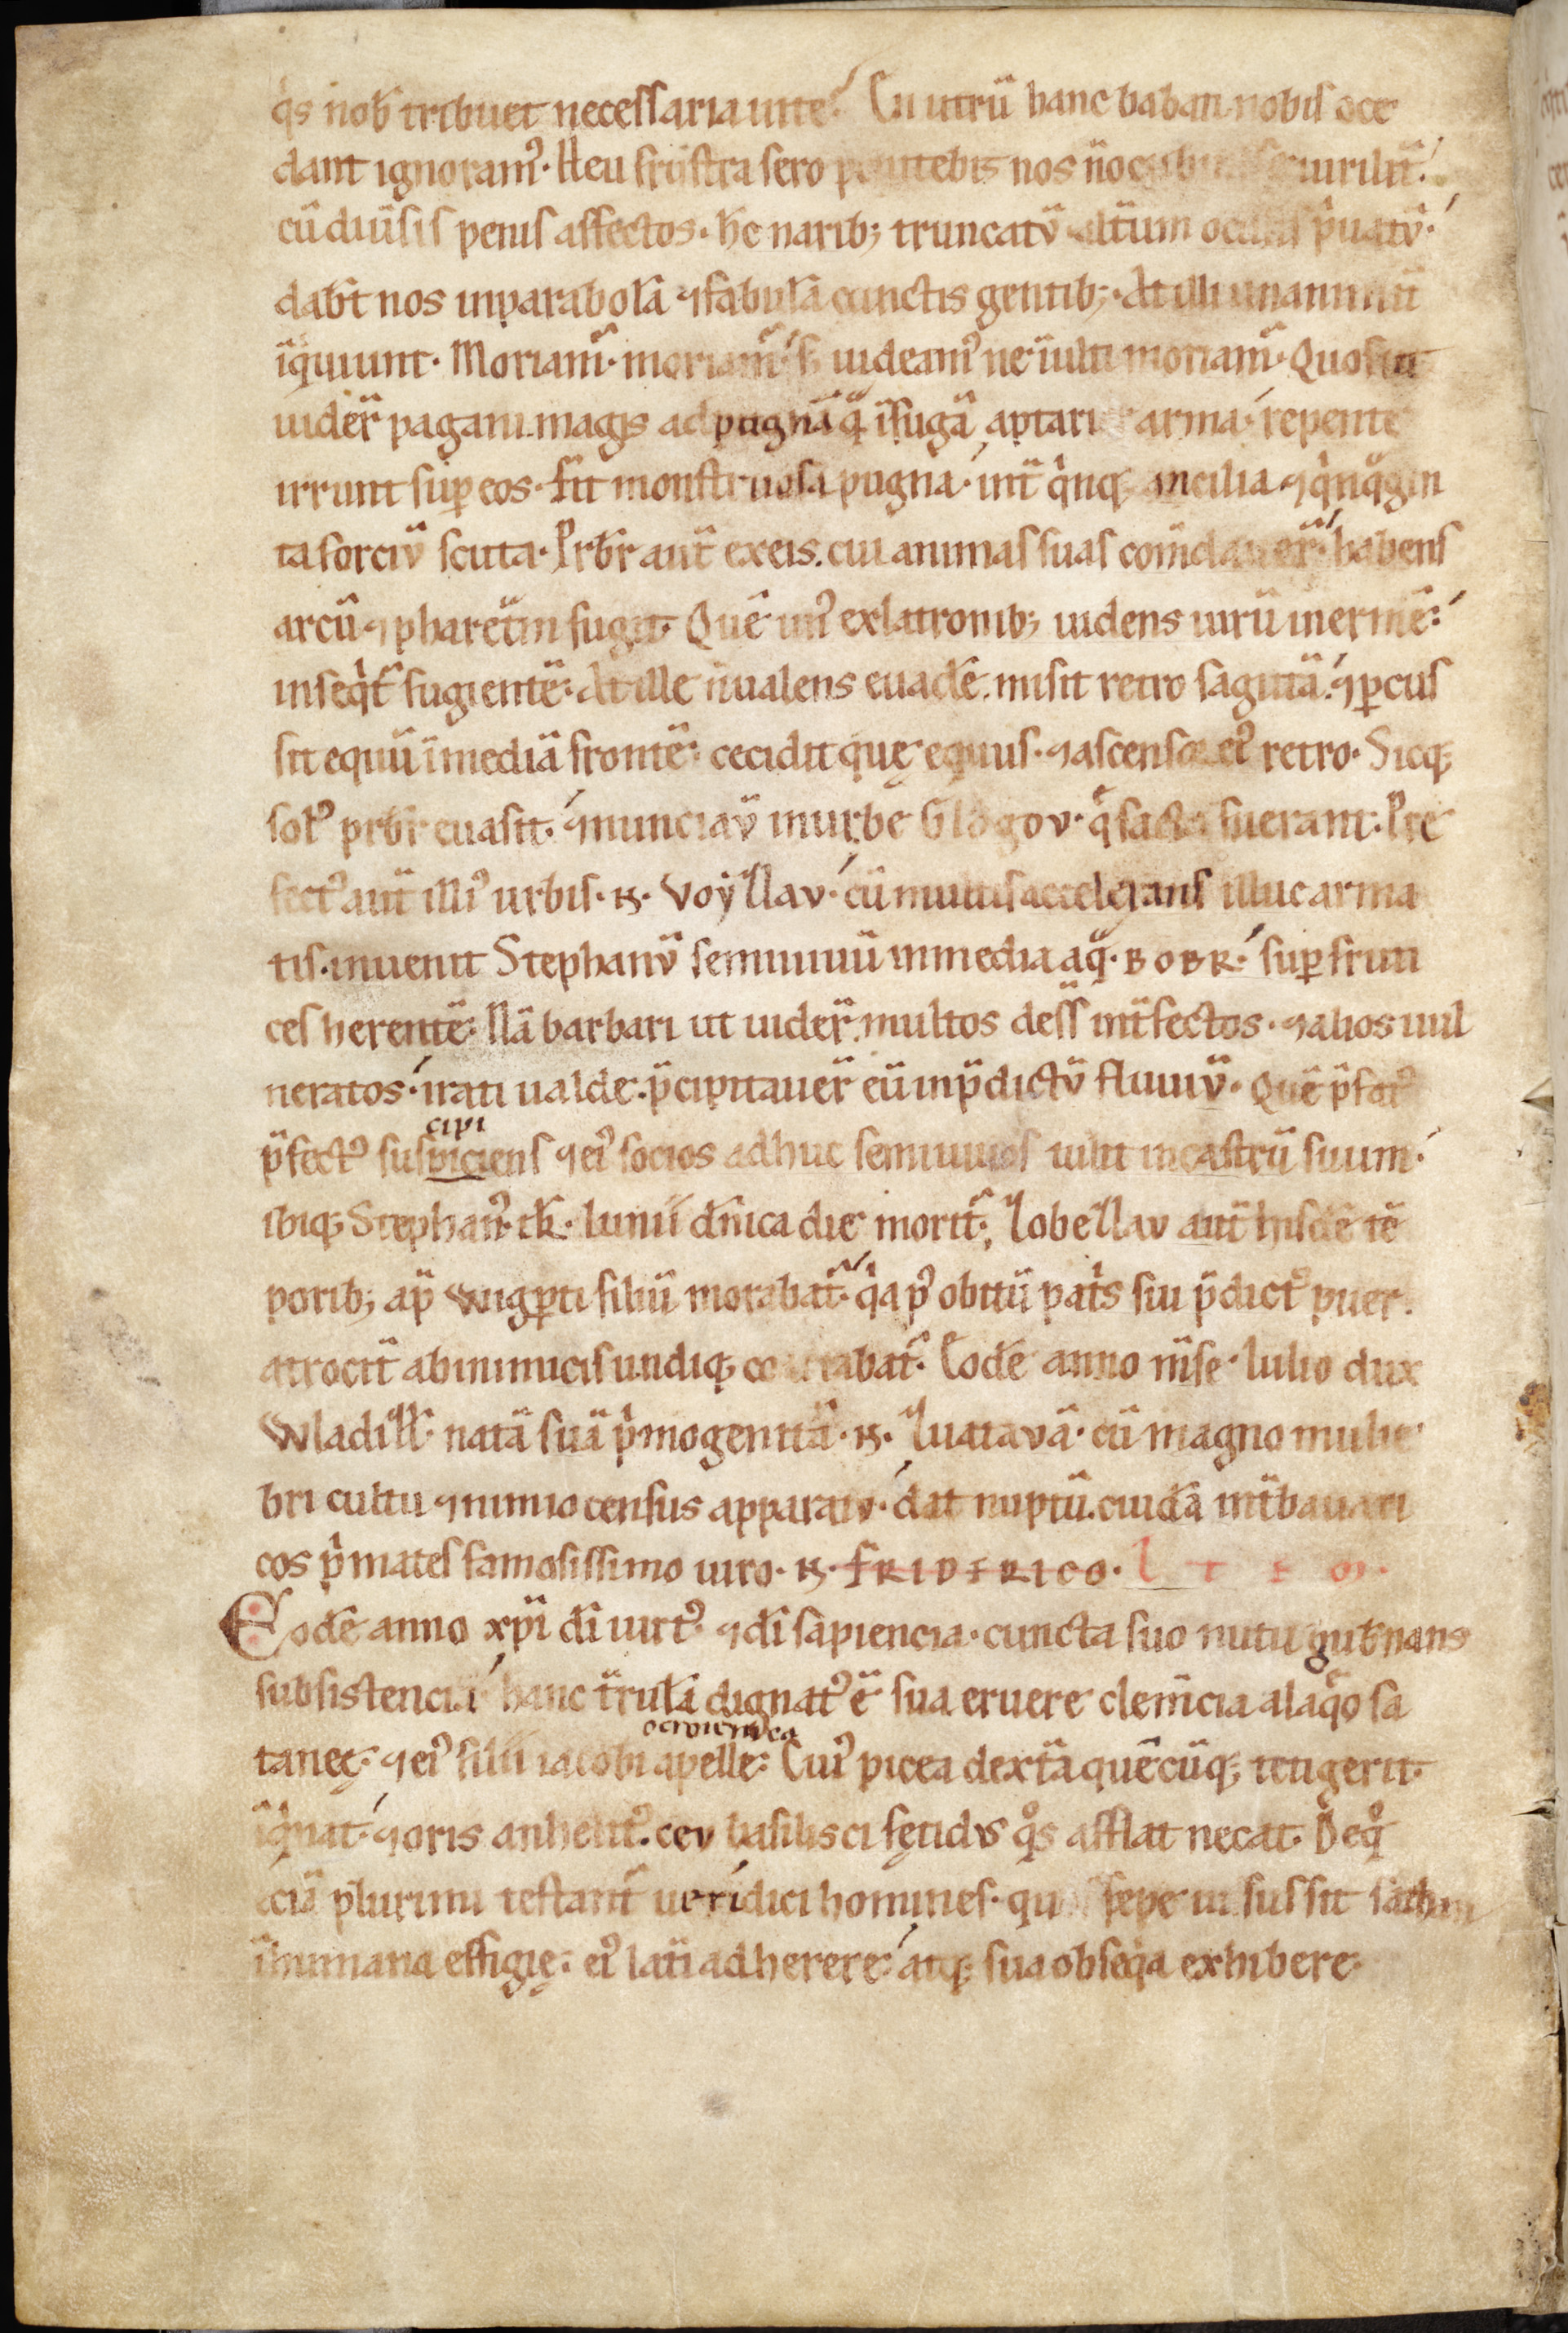 q̇s nob̄ tribuet necessaria uite? Cū utrū hanc baban nobis oce
dant ignoram᾽. Heu frustra sero penitebit nos n̄ occubuisse uirilit̄.
cū diūsis penis affectos. hc̄ narib; truncatū alt̄um oculis p̄uatū.
dab̄t nos in parabolā ⁊ fabulā cunctis gentib;. At illi unanimit̄
īquiunt. Moriam̄. moriam̄. s; uideam᾽ ne īulti moriam̄. Quos ut
uider̄ pagani magis ad pugnā q̄ īfugā aptari arma. repente
irrunt sup eos. Fit monstruosa pugna. int̄ q̇nq; ancilia ⁊ q̇nq̄gin
ta forciū scuta. Prb̄r aut̄ ex eis. cui animas suas com̄dauer̄. habens
arcū ⁊ pharet̄m fugit. Quē un᾽ ex latronib; uidens uirū inermē.
inseq̇t̄ fugientē. At ille n̄ ualens euadē. misit retro sagittā. ⁊ p̱cus
sit equū ī mediā frontē. cecidit quę equus. ⁊ ascensor ei᾽ retro. Sicq;
sol᾽ prb̄r euasit. ⁊ nunciaū in urbē Glogov. q̄ facta fuerant. Pre
fect᾽ aut̄ illi᾽ urbis. n̄. Voyslav. cū multis accelerans illuc arma
tis. inuenit Stephanū semiuiuū in media aq̄. BOBR. sup fruti
ces herentē. Nā barbari ut uider̄ multos de ss̄ int̄fectos. ⁊ alios uul
neratos. irati ualde. p̄cipitauer̄ eū in p̄dictū fluuiū. Quē p̄fat᾽
cipi
p̄fect᾽ suspiciens ⁊ ei᾽ socios adhuc semiuiuos tulit in castrū suum.
ibiq; Stephan᾽. k̄. Iunii dn̄ica die morit̄. Sobeslav aut̄ hisdē tē
porib; ap̄ Wigp̱ti filiū morabat̄. q̇a p᾽ obitū pat̄s sui p̄dict᾽ puer.
atrocit̄ ab inimicis undiq; coartabat̄. Eodē anno m̄se Iulio dux
Wladisl̄. natā suā ṗmogenitā. n̄. Suatavā. cū magno mulie
bri cultu ⁊ nimio census apparatu. dat nuptū. cuidā int̄ bauari
cos ṗmates famosissimo uiro. n̄. FRIDERICO.
Eodē anno xp̄i dī uirt᾽ ⁊ dī sapiencia. cuncta suo nutu gub̄nans
subsistencia. hanc t̄rulā dignat᾽ ē sua eruere clem̄cia a laq̄o sa
tanę. ⁊ ei᾽ filii iacobi apelle. Cui᾽ picea dext̄a quēcūq; tetigerit.
īq̇nat. ⁊ oris anhelit᾽. ceu basilisci fętidus q̊s afflat necat. De q̊
ciā plurimi testant̄ ueridici homines. quod sepe uisus sit sathan
ī humana effigię. ei᾽ lat̄i adherere. atq; sua obseq̇a exhibere.